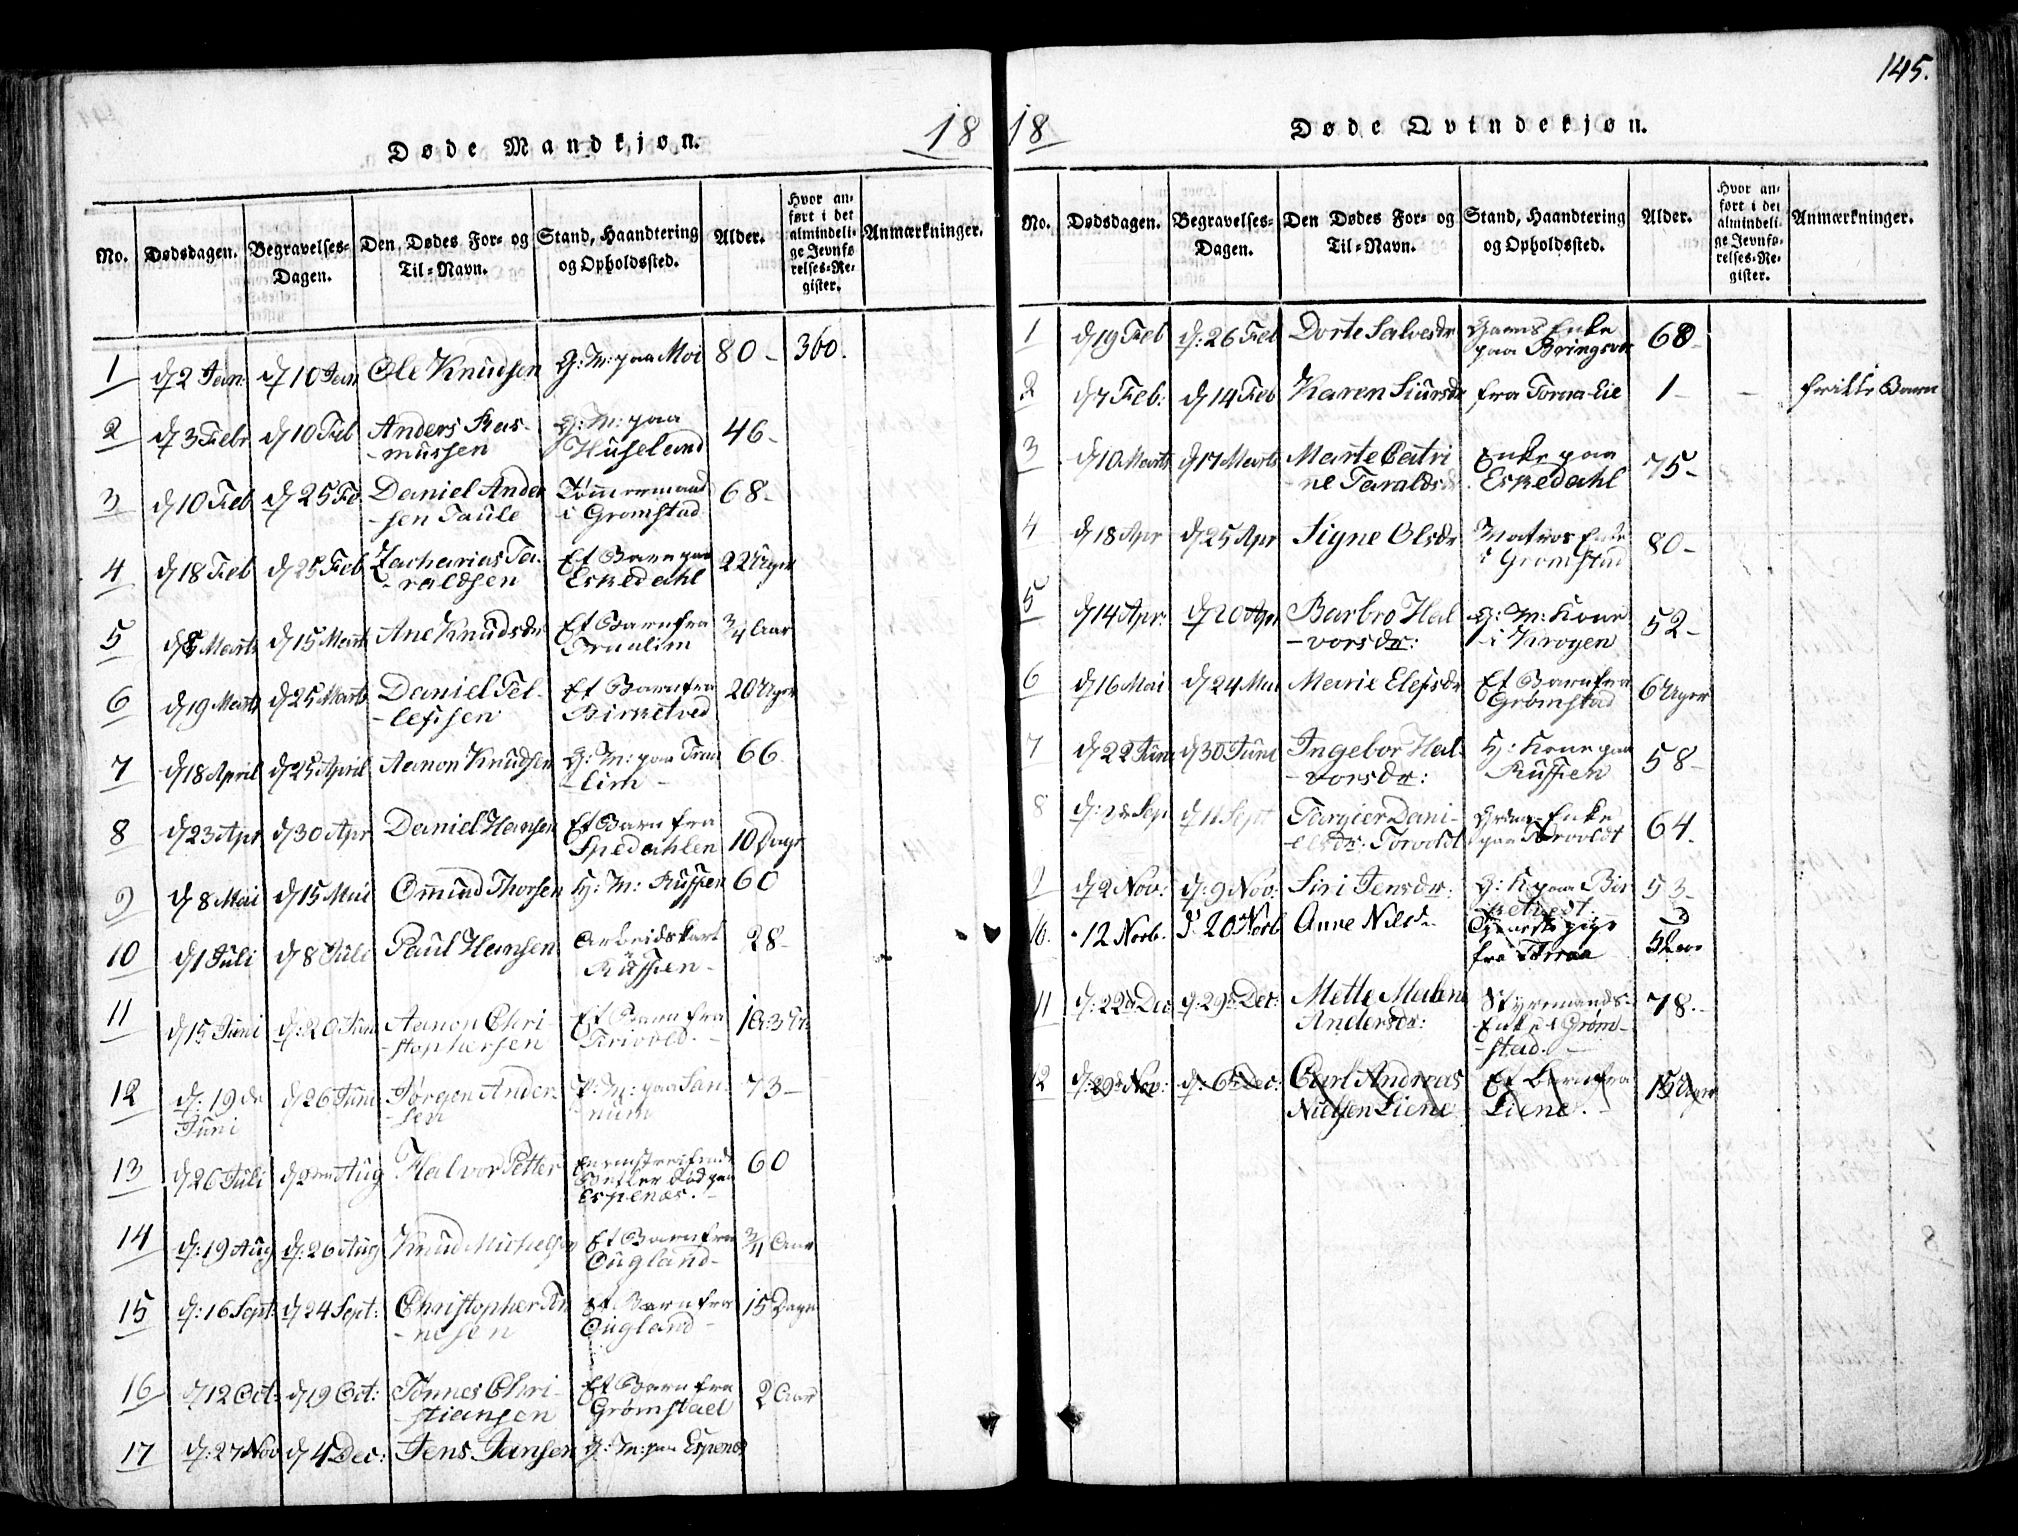 145.
Døde Mandkjøn. 18
No. Dødsdagen. Begravelses-Dagen. Den Dødes For- og Til-Navn. Stand, Haandtering og Opholdssted. Alder. Hvor anført i det almindelige Jevnførelses-Register. Anmærkninger.
1 d 2 Jan d 10 Jan Ole Knudsen G: M: paa Moi 80 - 360.
2 d 3 Febr d 10 Feb Anders Rasmussen G: M: paa Huseland 46-
3 d 10 Feb d 25 Fe Daniel Andersen Taule Tømmermand i Grømstad 68-
4 d 18 Feb d 25 Feb Zacharias Taraldsen Et Barn paa Eskedahl 22 Uger
5 d 8 Marts d 15 Marts Ane Knudsdr Et Barn fra Traalim 3/4 Aar
6 d 19 Marts d 25 Marts Daniel Tellefsen Et Barn fra Birketved 20 Uger
7 d 18 April d 25 April Aanon Knudsen G: M: paa Traalim - 66
8 d 23 Apr d 30 Apr Daniel Hansen Et Barn fra Spedahlen 10 Dage
9 d 8 Mai d 15 Mai Omund Thorsen H: M: Russen 60
10 d 1 Juli d 8 Juli Paul Hansen Arbeidskarl Russen- 28-
11 d 15 Juni d: 20 Juni Aanon Christophersen Et Barn fra
12 d: 19 de Juni d 26 Juni Jørgen Andersen paa Sannum 73-
13 d 26 Juli d 2 Aug Halvor Petter død paa Espenæs. 60
14 d: 19 Aug d: 26 Aug Knud Michelsen Et Barn fra Ougland- 3/4 Aar
15 d: 16 Sept: d 24 Sept: Christopher Et Barn fra Ougland- 15 Dage
16 d 12 Oct: d 19 Oct: Tønnes Christiansen Et Barn fra Grømstad 2 Aar
17 d: 27 Nov d 4 Dec: Jens Jansen G: M: paa Espenæs
18 Døde Qvindekjøn.
No. Dødsdagen. Begravelses-Dagen. Den Dødes For- og Til-Navn. Stand, Haandtering og Opholdssted. Alder. Hvor anført i det almindelige Jevnførelses-Register. Anmærkninger.
1 d 19 Feb d: 26 Feb Dorte Salvesdr Enke paa Bringsvær 68-
2 d 7 Feb: d 14 Feb Karen Siursdr fra 1- Barn
3 d 10 Marts d 17 Marts Marte Catrine Taraldsdr Enke paa Eskedahl 75-
4 d 18 Apr d 25 Apr Signe Olsdr Matros Enke i Grømstad 80-
5 d 14 Apr: d 20 Apr Barbro Halvorsdr: G: M: Kone i Krogen 52-
6 d 16 Mai d 24 Mai Marie Elefsdr Et Barn fra Grømstad 6 Uger
7 d 22 Juni d 30 Juni Ingebor Halvorsdr: H: Kone paa Russen 58-
8 d: Sep d 11 Sept Targier Danielsdr: Enke paa 64.
9 d 2 Nov: d: 9 Nov: Siri Jensdr: G: K paa Birketvedt 53-
10. 12 Novb. d: 20 Novb Anne Nilsd. pige fra
11 d: 22d Dec d: 29d Dec: Mette Malene Andersdr: Styrmands-Enke i Grømstad. - 78.-
12 d: 29d Nov: d: 6d Dec: Carl Andreas Nielsen Liene Et barn fra Liene.- 15 Uger